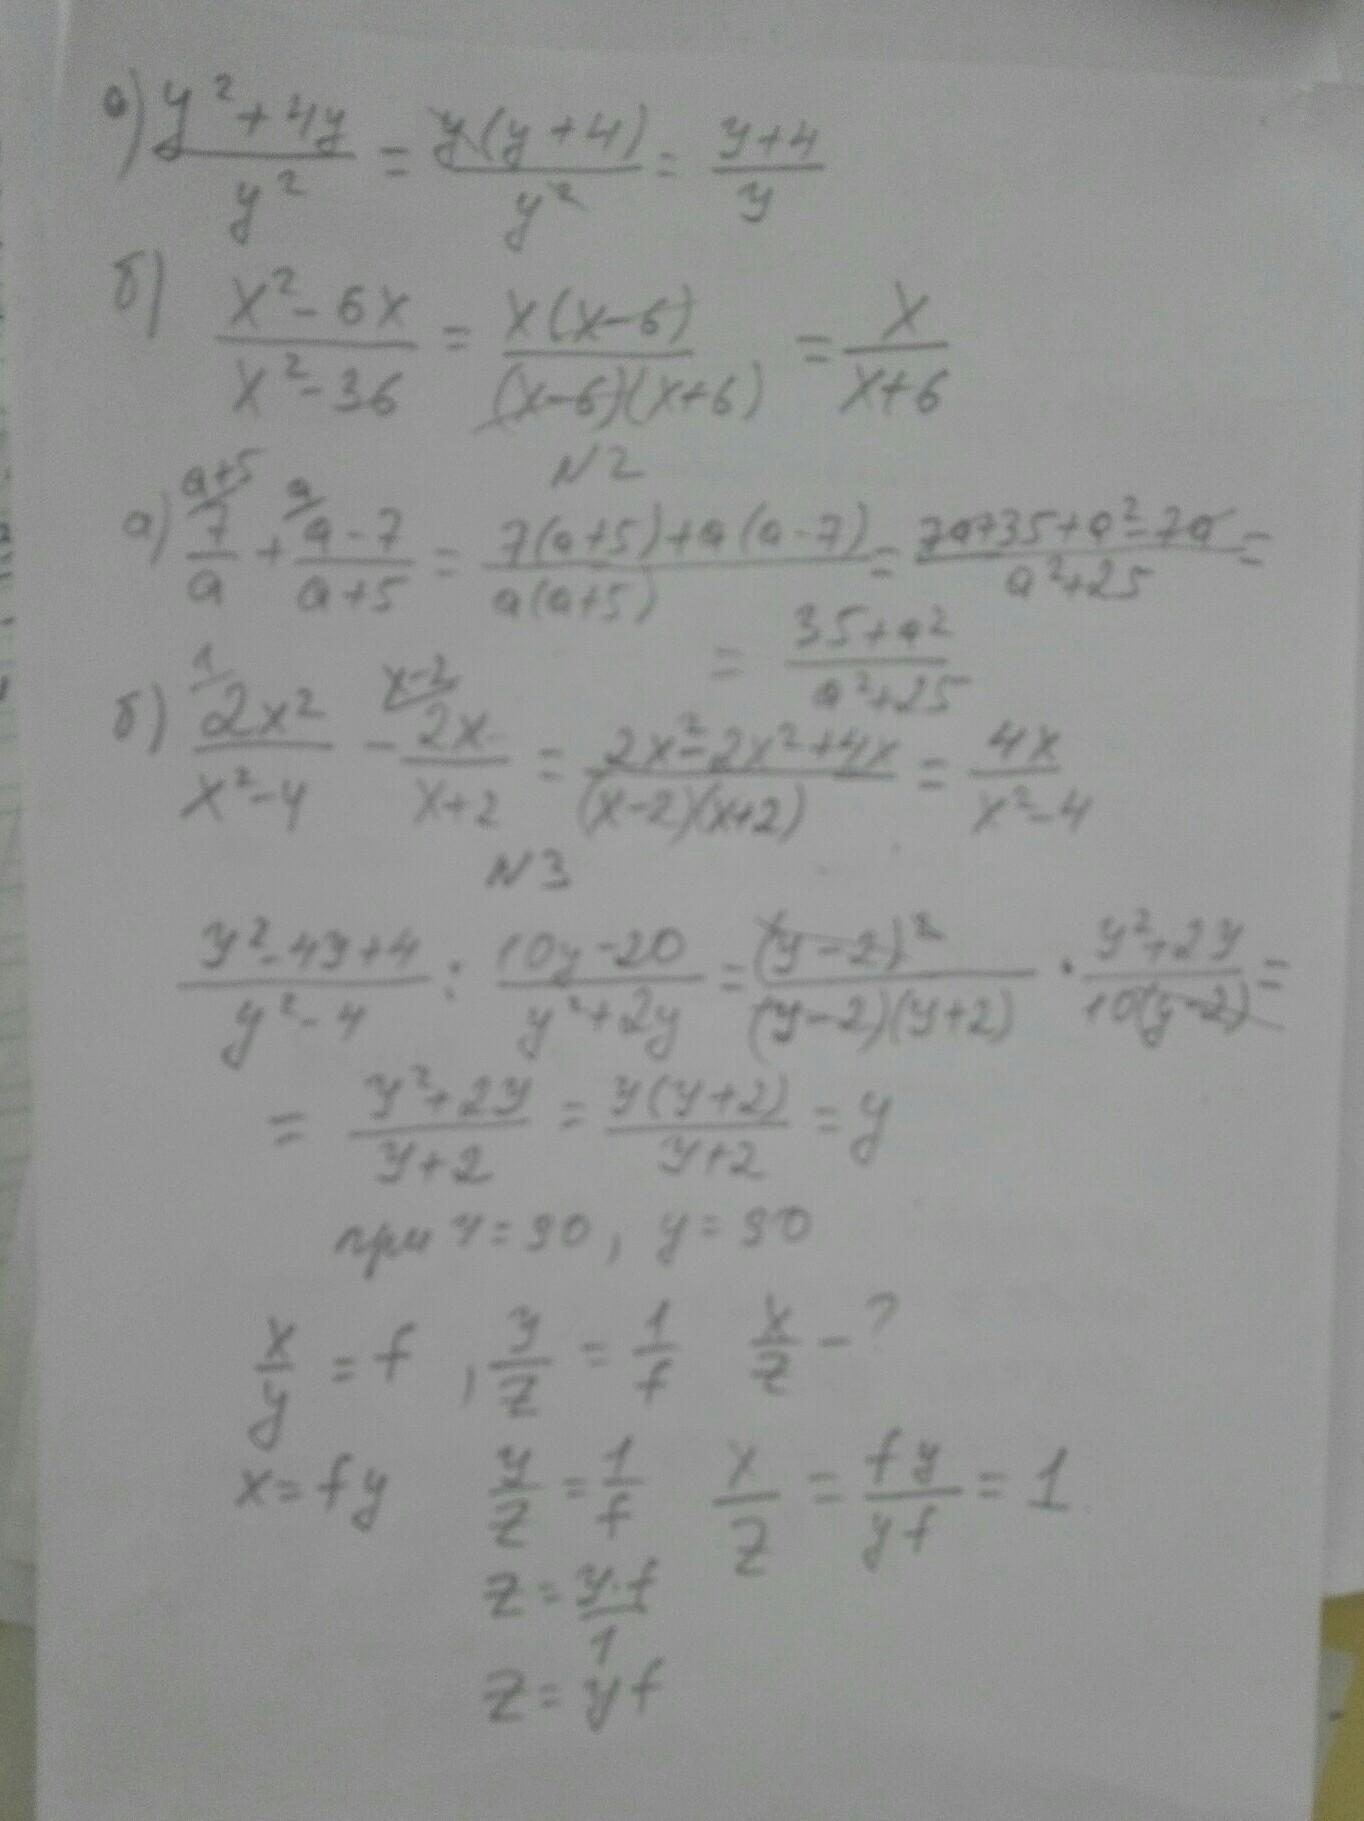 а) (y² + 4y)/y² = y(y + 4)/y² = (y+4)/y
б) (x² - 6x)/(x² - 36) = x(x-6)/((x-6)(x+6)) = x/(x+6)
N2
а) 7/a (a+5) + (a - 7)/(a+5) (a) = (7(a+5)+a(a-7))/(a(a+5)) = (7a+35+a²-7a)/(a²+25) =
= (35+a²)/(a²+25)
б) 2x²/(x²-4) (1) - 2x/(x+2) (x-2) = (2x²-2x²+4x)/((x-2)(x+2)) = 4x/(x²-4)
N3
(y²-4y+4)/(y²-4) : (10y-20)/(y²+2y) = (y-2)²/((y-2)(y+2)) · (y²+2y)/(10(y-2)) =
= (y²+2y)/(y+2) = y(y+2)/(y+2) = y
при y=90, y=90
x/y = f, y/z = 1/f x/z - ?
x=fy y/z = 1/f x/z = fy/yf = 1
z = y·f/1
z = yf